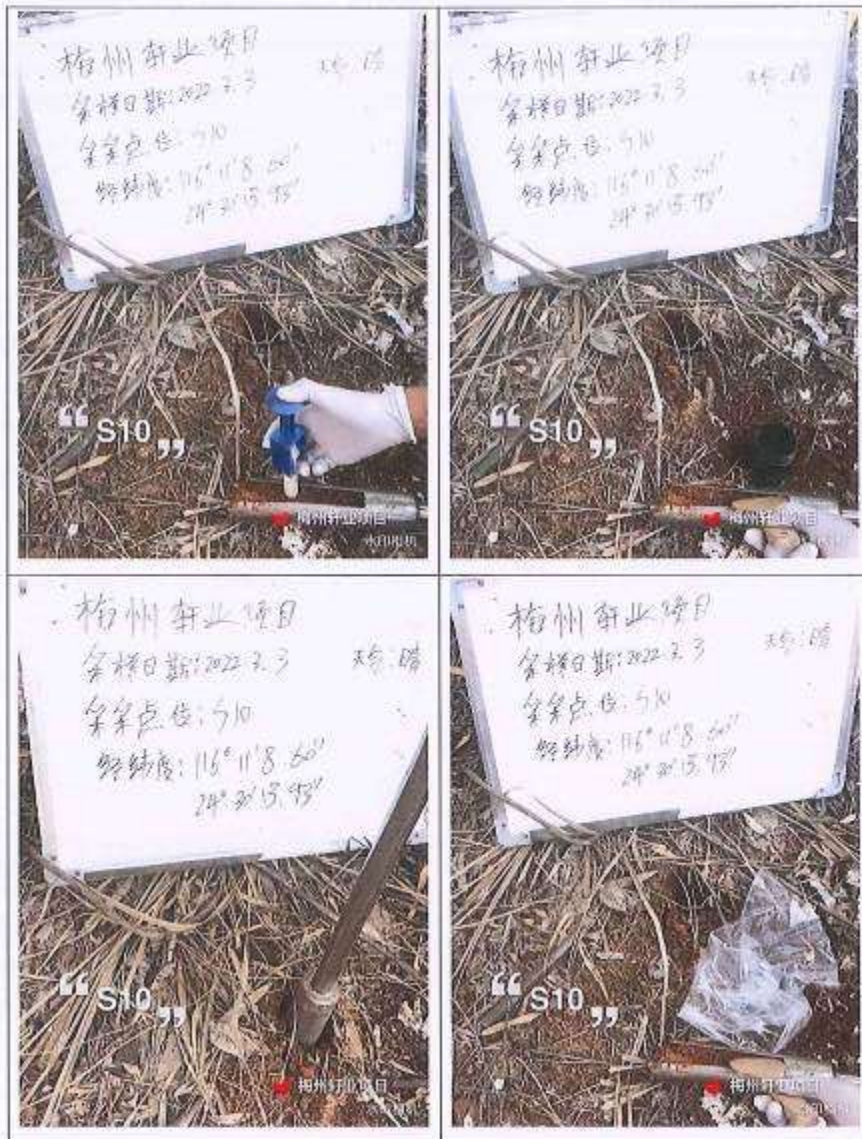 梅州轩业项目
采样日期:2022.3.3
天气:晴
采样点位:S10
经纬度:116°11'8.60"
24°30'15.93"
“S10”
梅州轩业项目
水印相机
梅州轩业项目
采样日期:2022.3.3
天气:晴
采样点位:S10
经纬度:116°11'8.60"
24°30'15.93"
“S10”
梅州轩业项目
水印相机
梅州轩业项目
采样日期:2022.3.3
天气:晴
采样点位:S10
经纬度:116°11'8.60"
24°30'15.93"
“S10”
梅州轩业项目
水印相机
梅州轩业项目
采样日期:2022.3.3
天气:晴
采样点位:S10
经纬度:116°11'8.60"
24°30'15.93"
“S10”
梅州轩业项目
水印相机